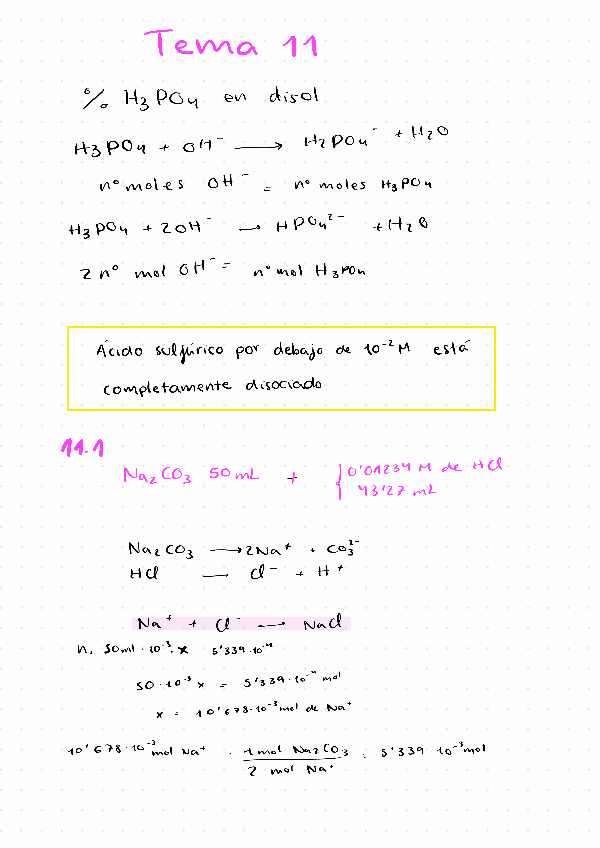 Tema 11
% H₃PO₄ en disol
H₃PO₄ + OH⁻ ⟶ H₂PO₄⁻ + H₂O
nº moles OH⁻ = nº moles H₃PO₄
H₃PO₄ + 2OH⁻ → HPO₄²⁻ + H₂O
2 nº mol OH⁻ = nº mol H₃PO₄
Ácido sulfúrico por debajo de 10⁻² M está
completamente disociado
11.1
Na₂CO₃ 50 mL + { 0'01234 M de HCl
43'27 mL
Na₂CO₃ ⟶ 2Na⁺ + CO₃²⁻
HCl ⟶ Cl⁻ + H⁺
Na⁺ + Cl⁻ ⟶ NaCl
n. 50ml · 10⁻³ · x 5'339 · 10⁻⁴
50 · 10⁻³ x = 5'339 · 10⁻⁴ mol
x = 10'678 · 10⁻³ mol de Na⁺
10'678 · 10⁻³ mol Na⁺ · 1 mol Na₂CO₃ = 5'339 · 10⁻³ mol
2 mol Na⁺